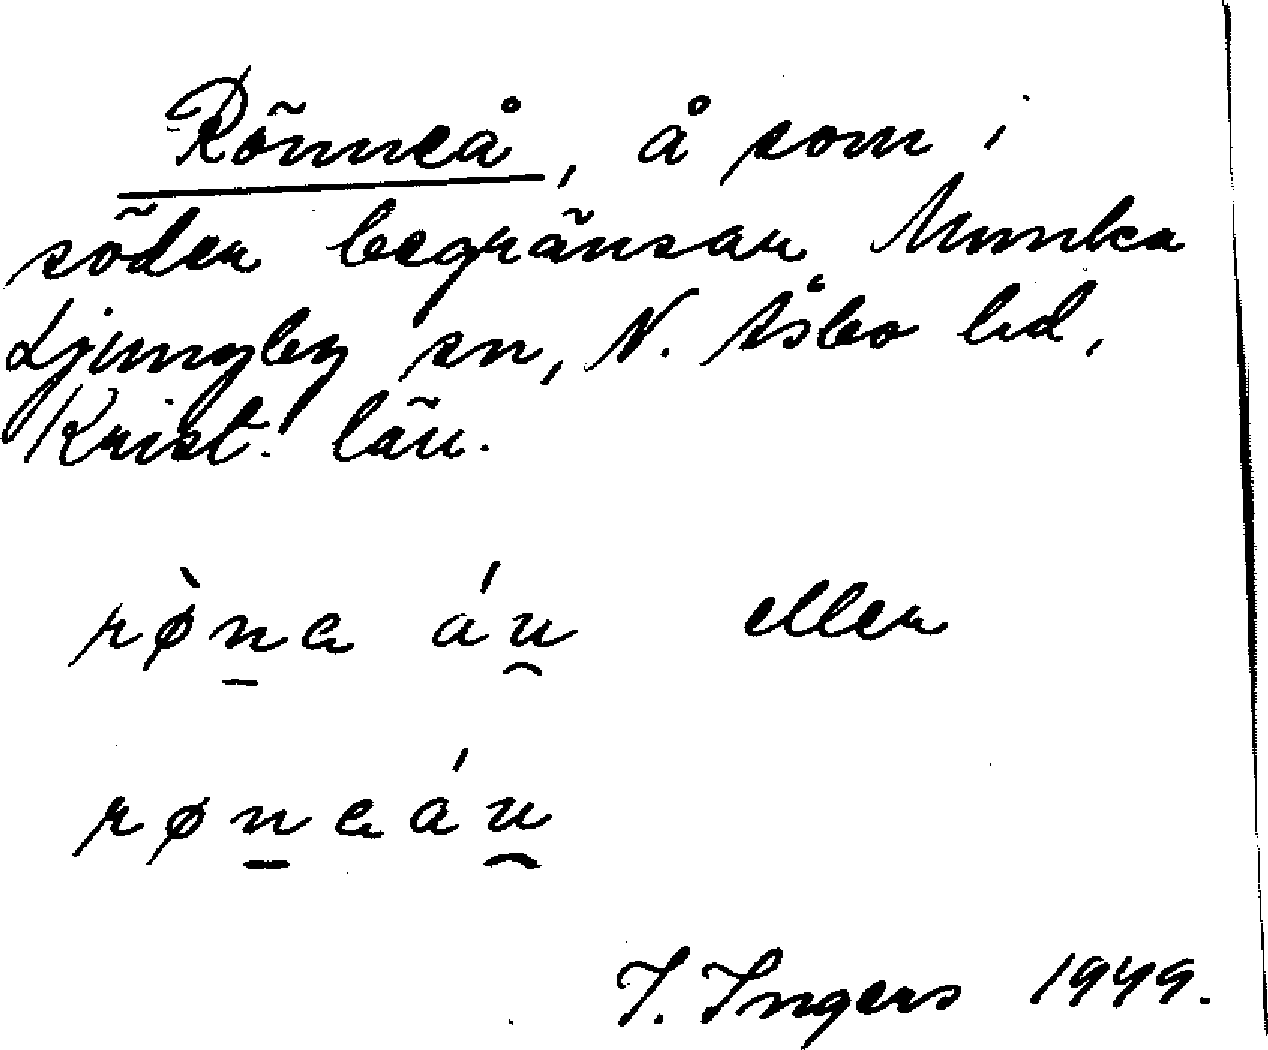 Rönneå, å som i
söder begränsar Munka
Ljungby sn, N. Åsbo hd,
Krist. län.
rø̀n̲a áu̯ eller
røn̲aáu̯
I. Ingers 1949.